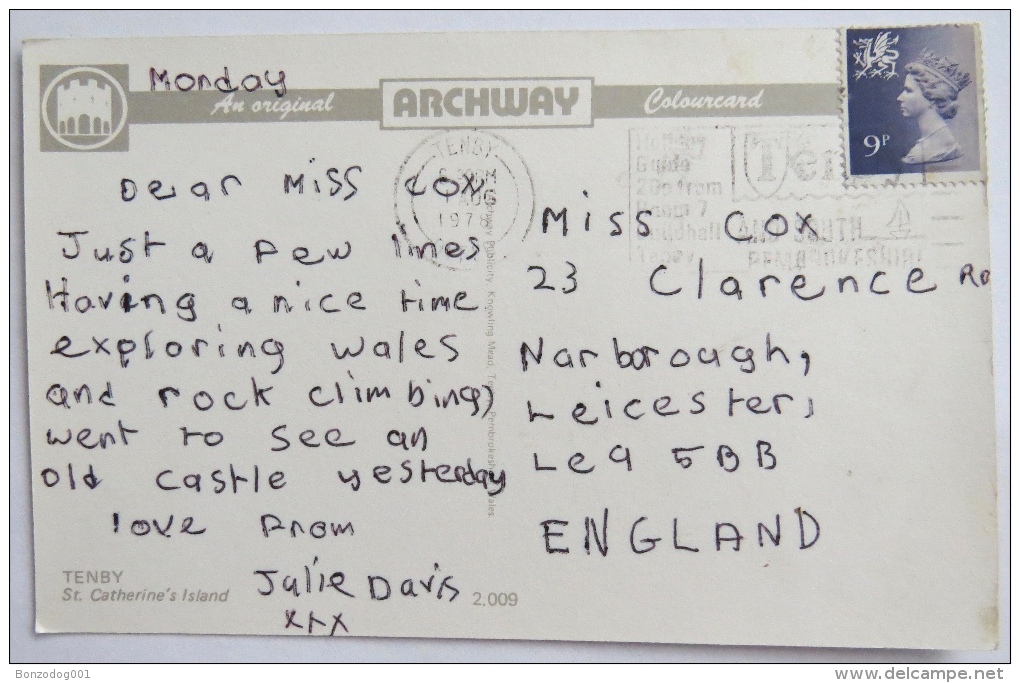 Monday
An original
ARCHWAY
Colourcard
Dear Miss Cox
Just a few lines
Having a nice time
exploring wales
and rock climbing,
went to see an
old castle yesterday
love From
Julie Davis
xxx
TENBY
St. Catherine's Island
2.009
Publicity, Knowling Mead, Pembrokeshire, Wales.
TENBY
AUG
1978
Holiday
Guide
20p from
Room 7
Guildhall
Tenby
AND SOUTH
PEMBROKESHIRE
9P
Miss Cox
23 Clarence Rd
Narborough,
Leicester,
Le9 5BB
ENGLAND
Bonzodog001
delcampe.net